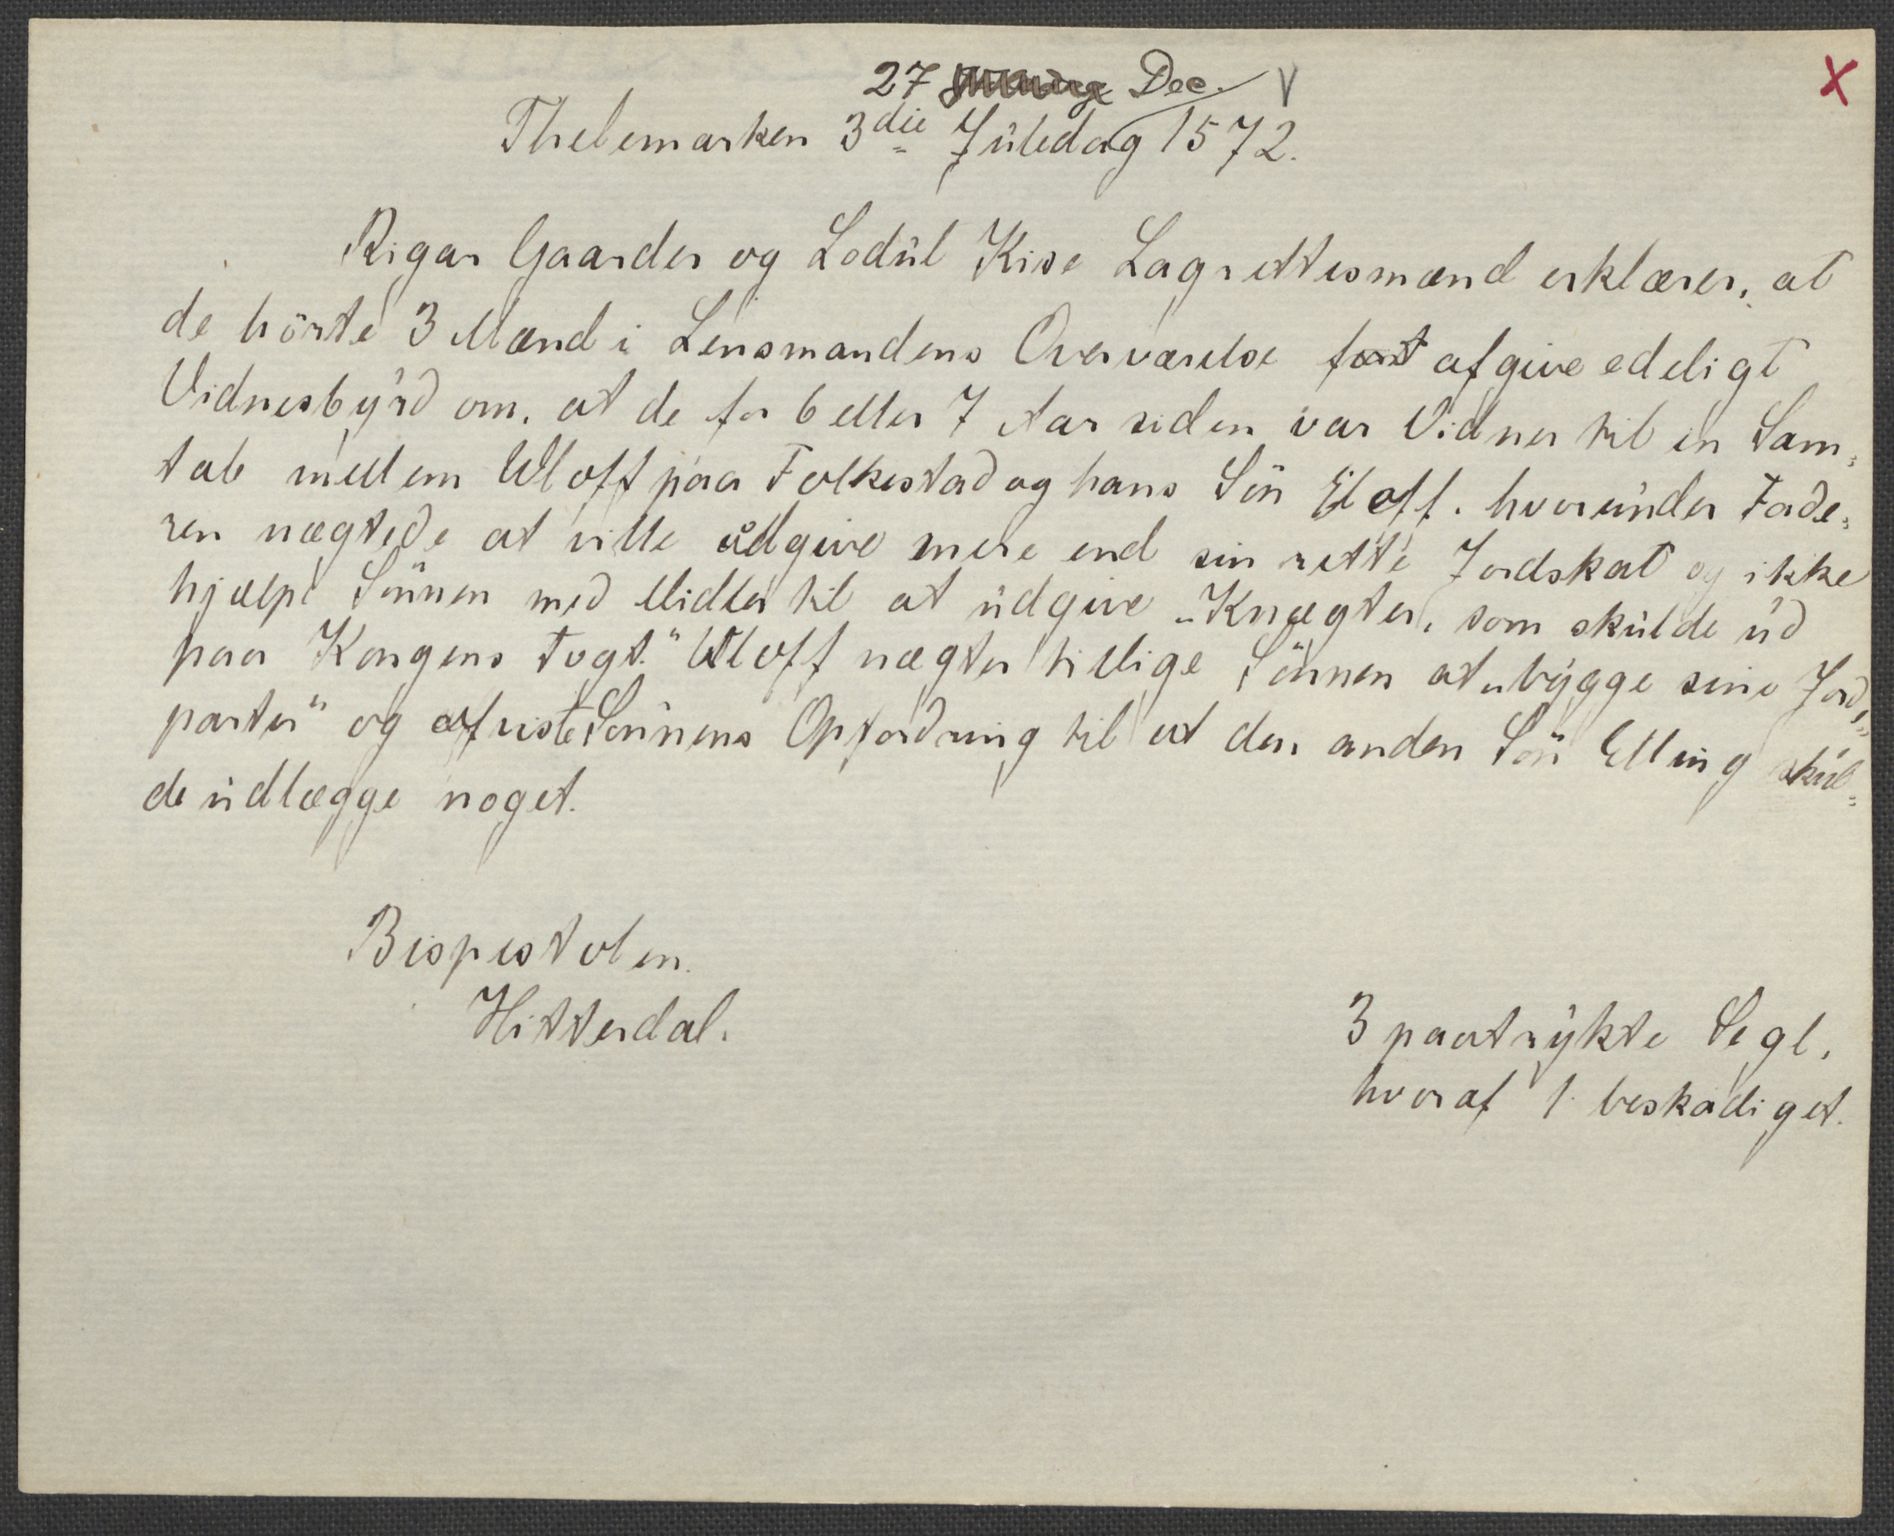 27 Dec. V X
Thelemarken 3die Juledag 1572.
Rigar Gaarder og Lodul Kise Lagrettesmænd erklærer, at
de hörte 3 Mænd i Lensmandens Overværelse afgive edeligt
Vidnesbyrd om, at de for 6 eller 7 Aar siden var Vidner til en Sam=
tale mellem Uloff paa Folkestad og hans Sön Eloff, hvorunder Fade=
ren nægtede at ville udgive mere end sin rette Jordskat og ikke
hjælpe Sönnen med Midler til at udgive „Knægter, som skulde ud
paa Kongens Togt." Uloff nægter tillige Sönnen at „bygge sine Jord=
parter" og afviste Sönnens Opfordring til at den anden Sön Elling skul=
de udlægge noget.
Bispestolen.
Hitterdal.
3 paatrykte Segl,
hvoraf 1 beskadiget.